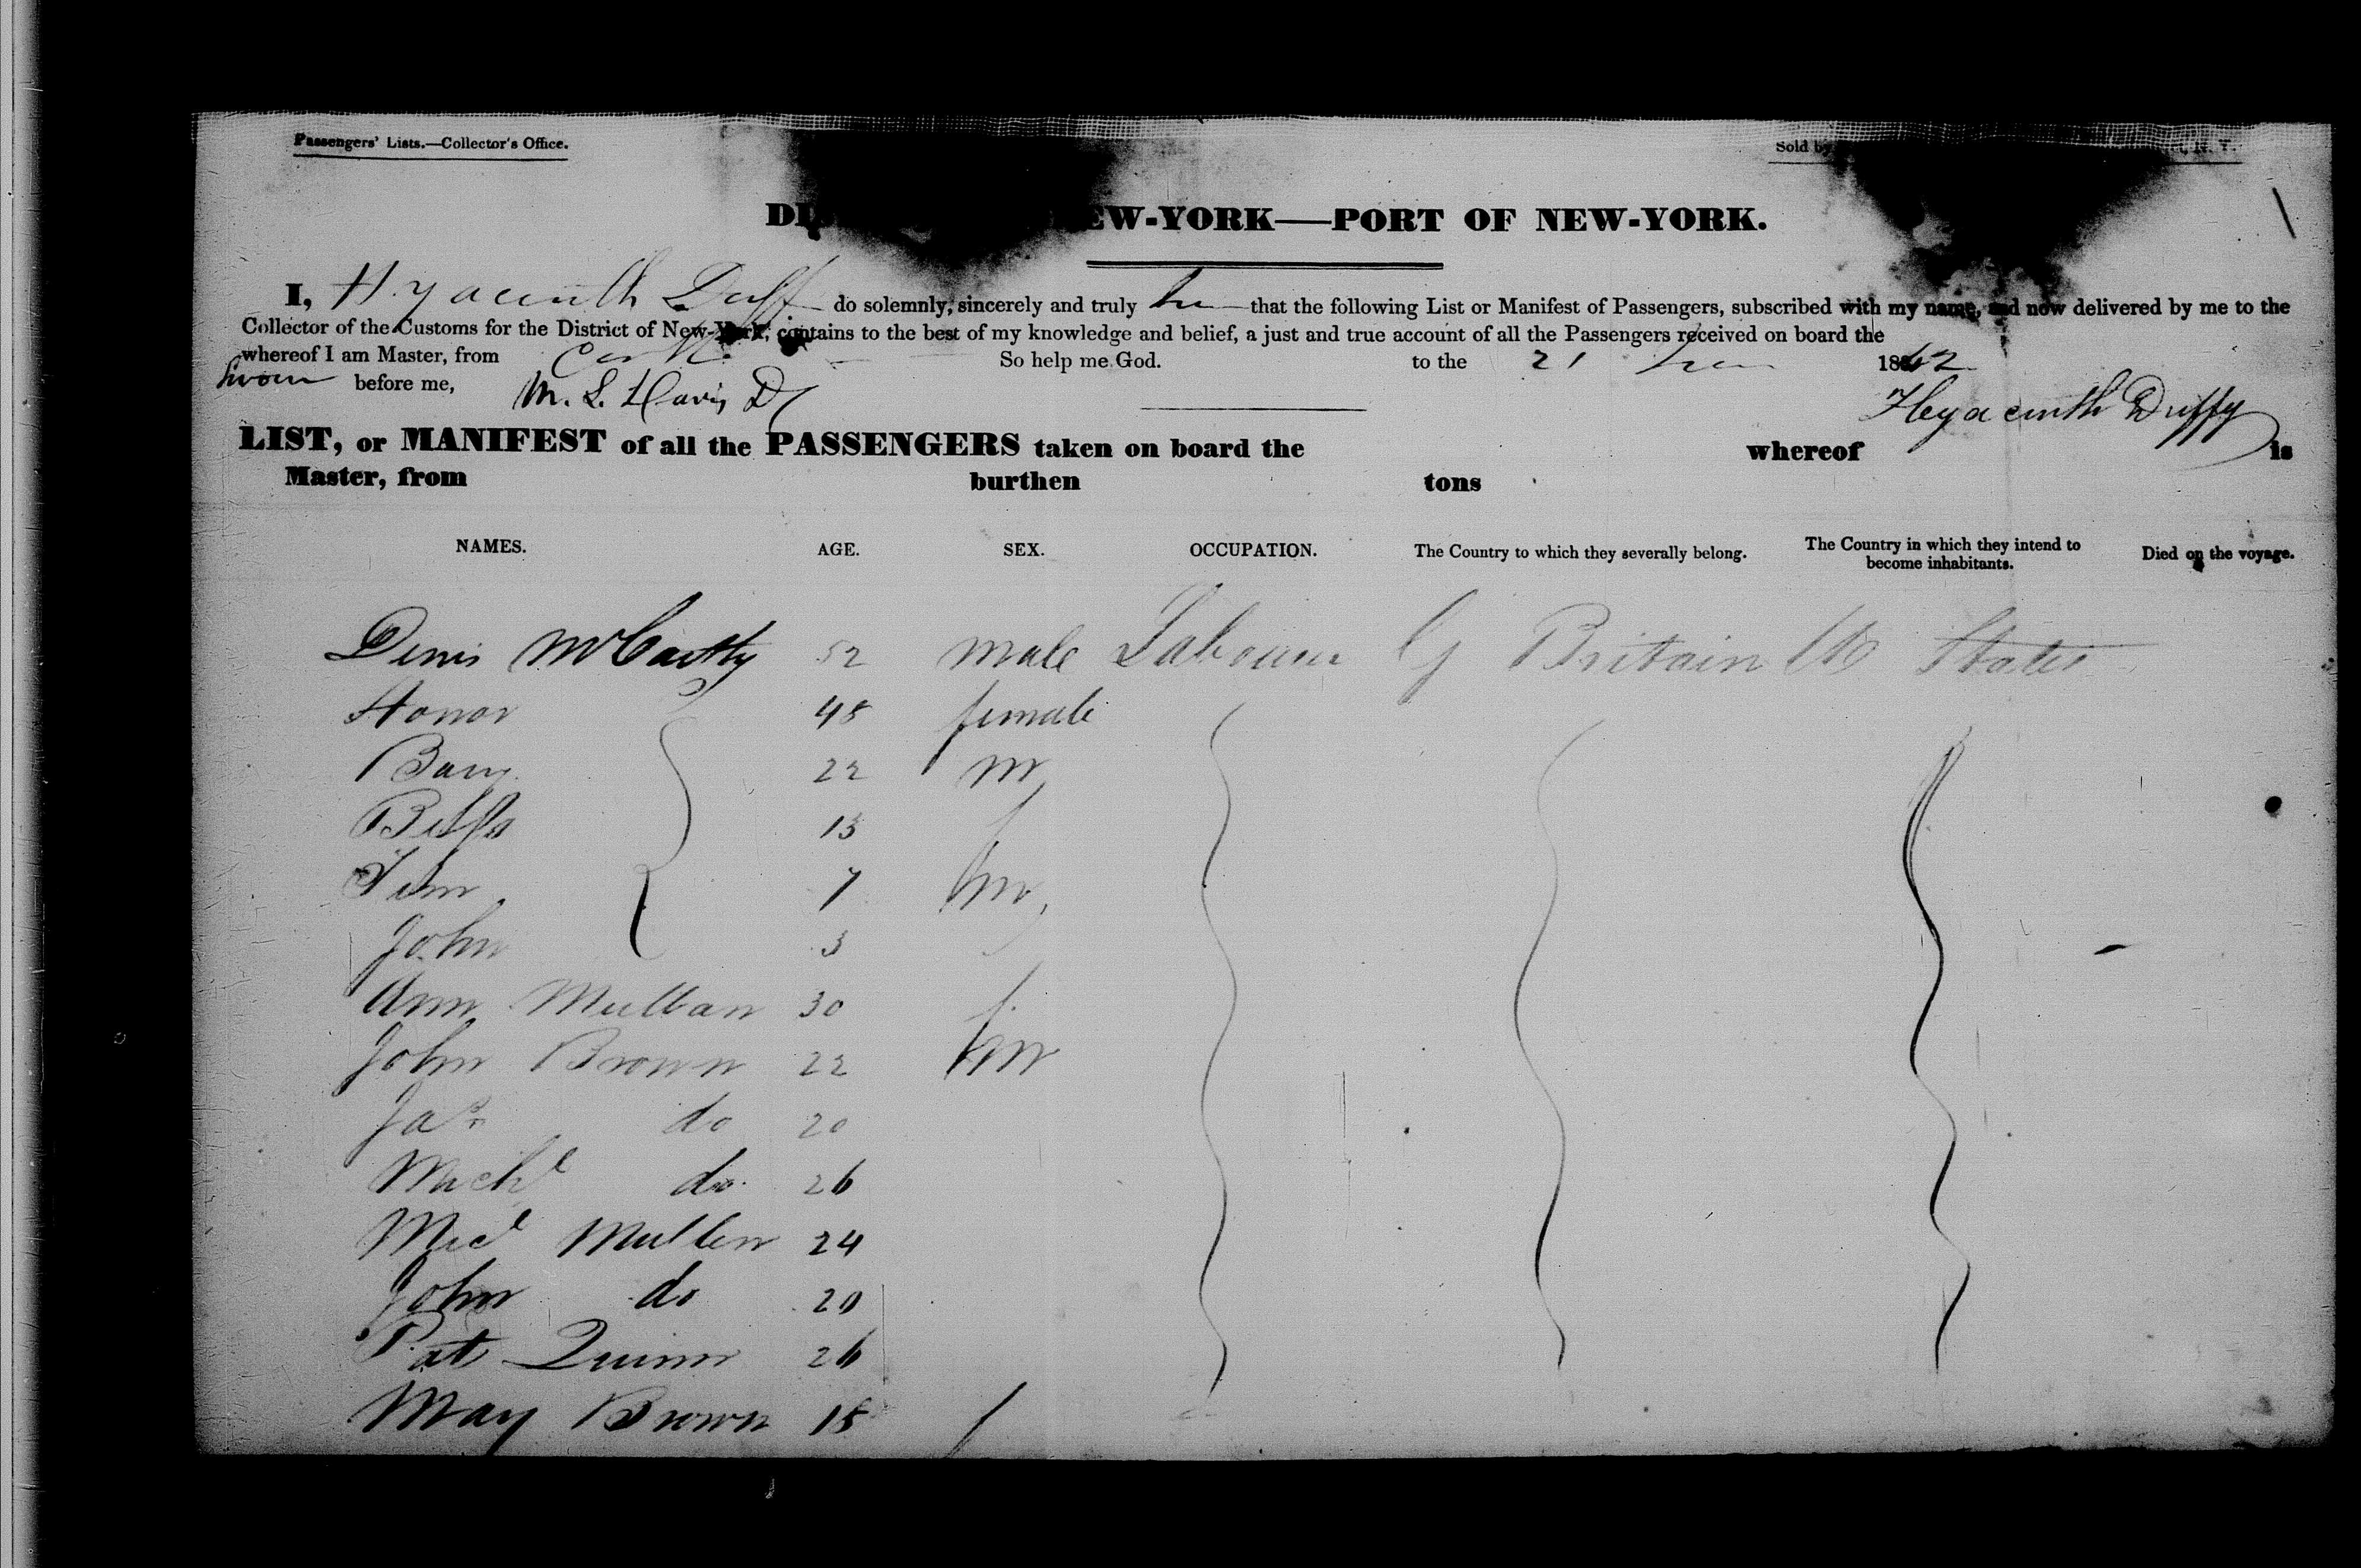 Passengers' Lists.—Collector's Office.
Sold by N. Y.
NEW-YORK—PORT OF NEW-YORK.
I, Hyacinth Duff do solemnly, sincerely and truly that the following List or Manifest of Passengers, subscribed with my name, and now delivered by me to the
Collector of the Customs for the District of New-York, contains to the best of my knowledge and belief, a just and true account of all the Passengers received on board the
whereof I am Master, from Cork. So help me God. to the 21 1842
Sworn before me, M. L. Davis
Heyacinth Duffy
LIST, or MANIFEST of all the PASSENGERS taken on board the whereof is
Master, from burthen tons
NAMES. AGE. SEX. OCCUPATION. The Country to which they severally belong. The Country in which they intend to become inhabitants. Died on the voyage.
Denis McCarthy 52 male Labourer G Britain U States
Honor 48 female
22 m
13 f
Tim 7 m
John 3
Ann Mullan 30 f
John Brown 22 m
Jas do 20
Michl do 26
Micl Mullen 24
John do 20
Pat Quinn 26
Mary Brown 18 f